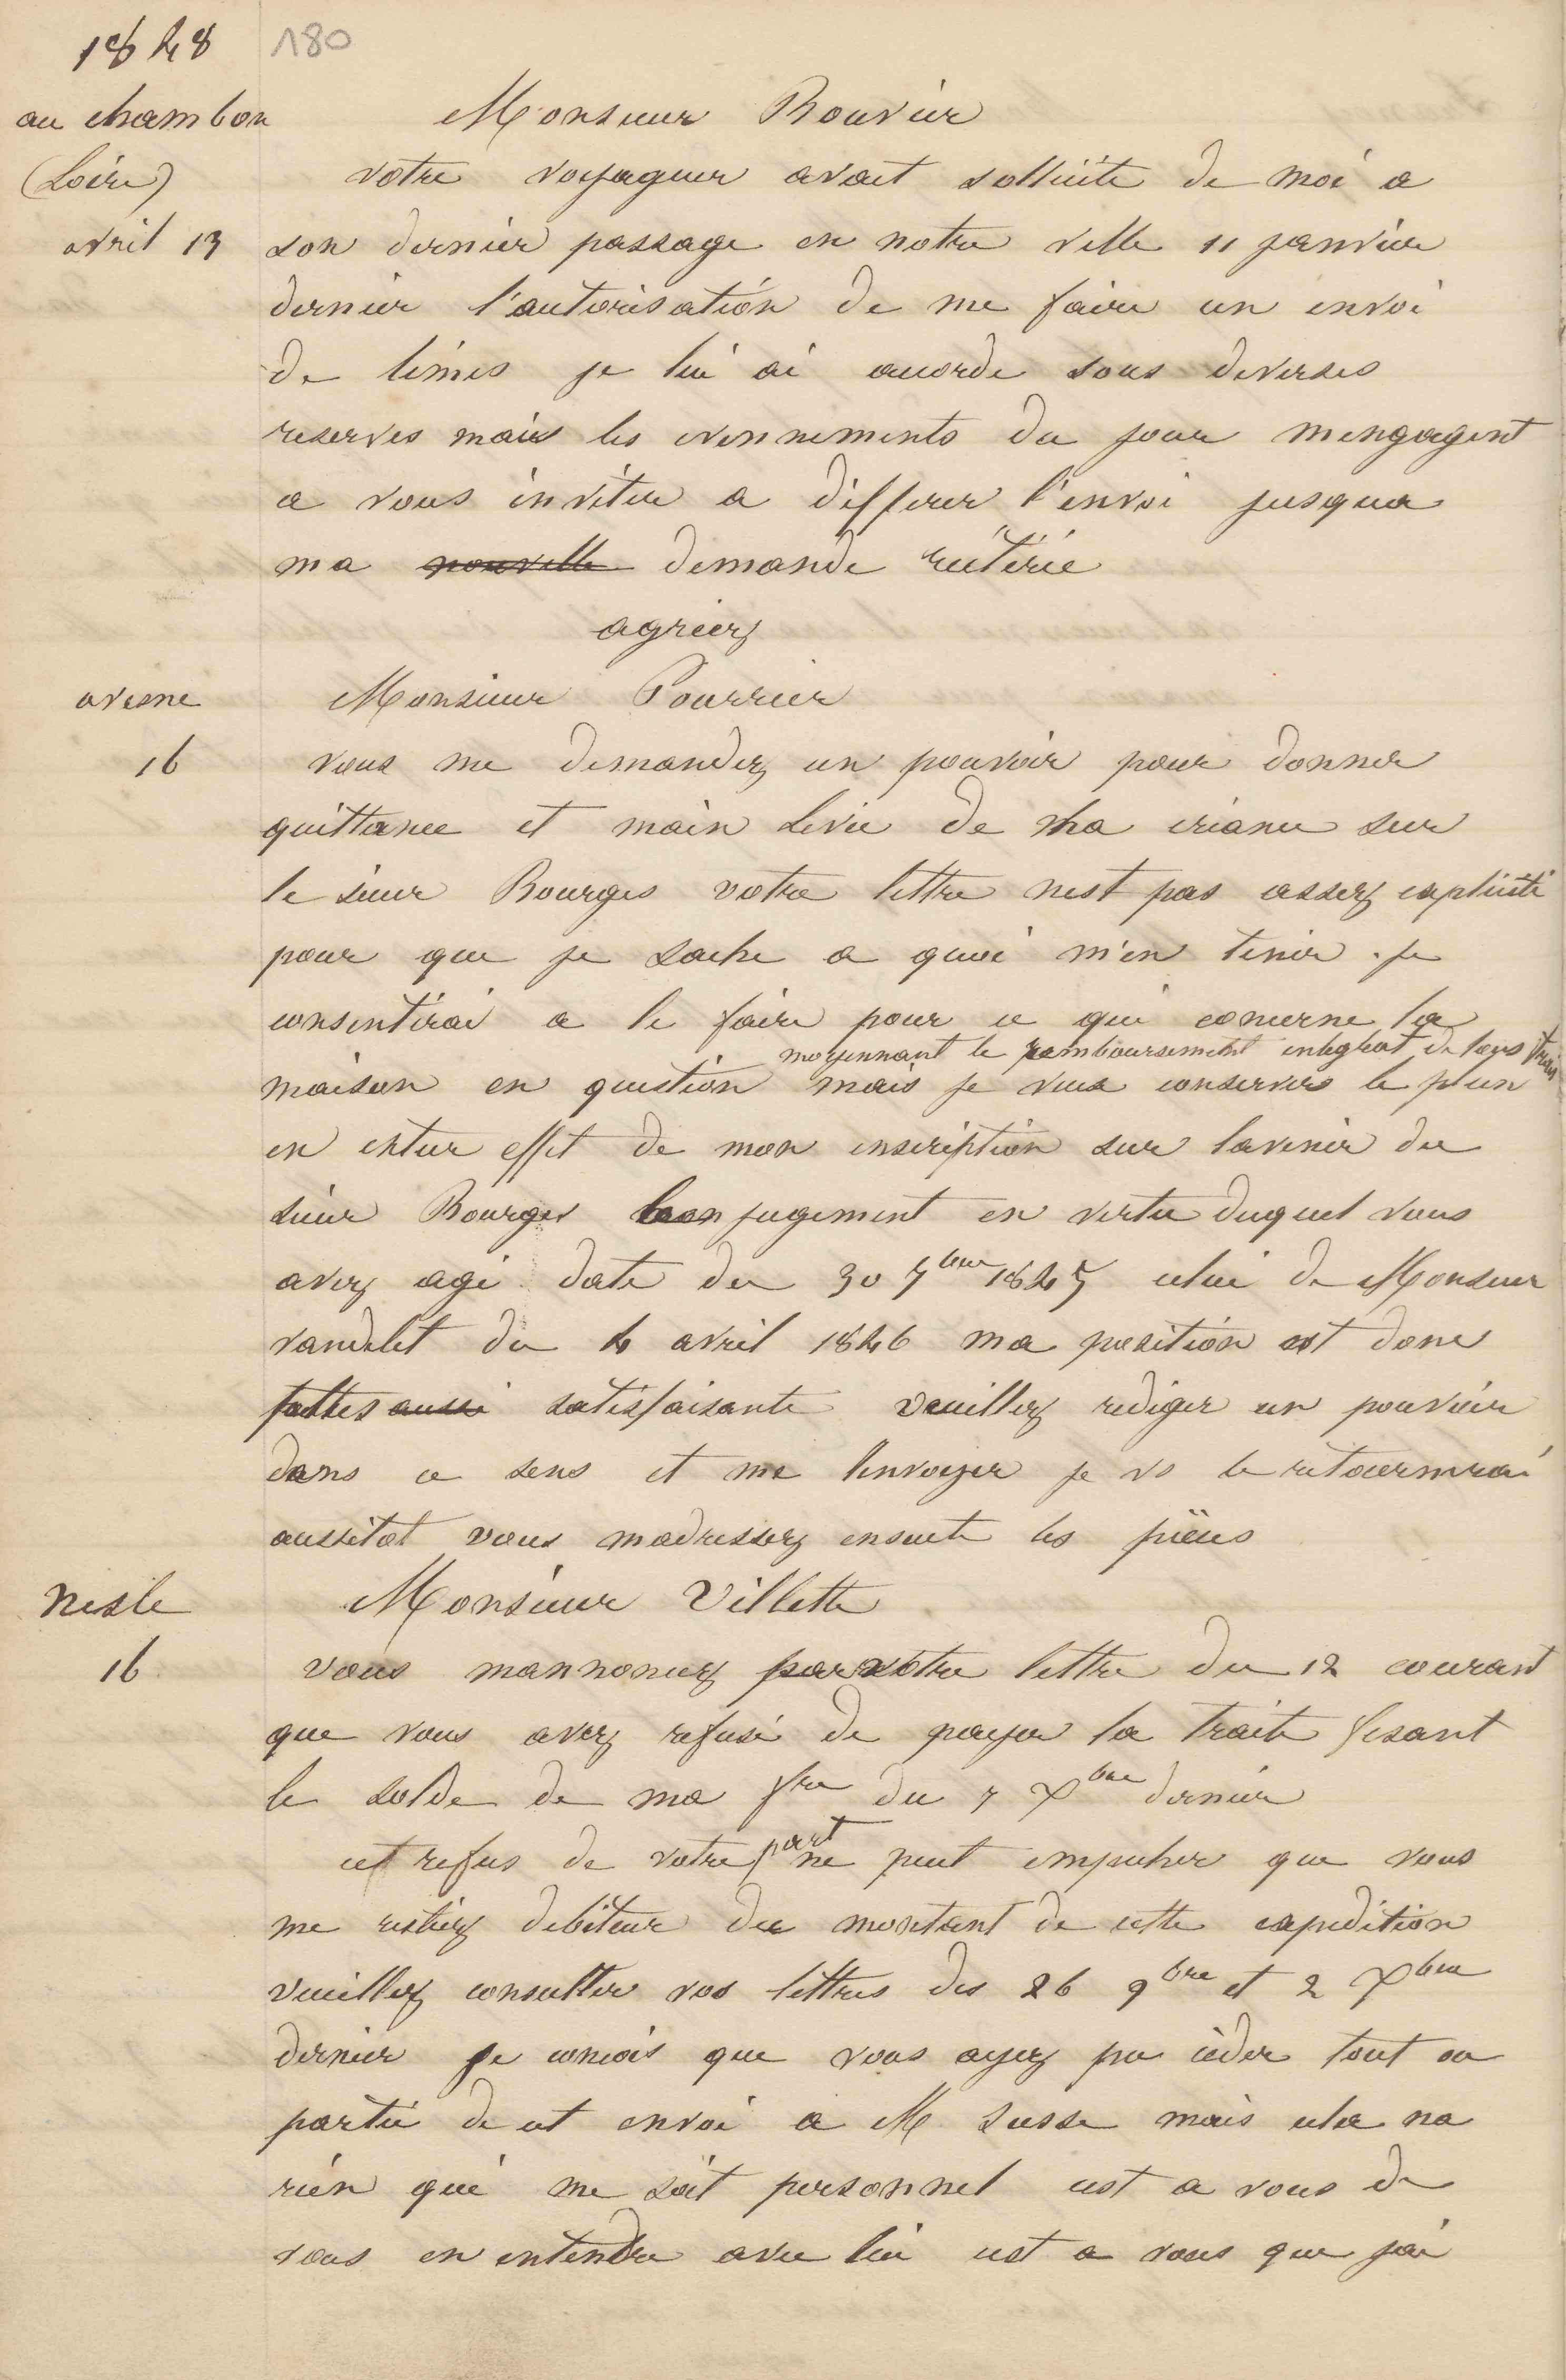 1848 180
au chambon Monsieur Bouvier
(Loire) votre voyageur avait sollicité de moi a
avril 13 son dernier passage en notre ville 11 janvier
dernier l'autorisation de me faire un envoi
de limes je lui ai accorde sous diverses
reserves mais les evennements du jour mengagent
a vous inviter a differer l'envoi jusqua
ma nouvelle demande réitérée
agreez
avesne Monsieur Pourrier
16 vous me demandez un pouvoir pour donner
quittance et main levée de ma créance sur
le sieur Bourges votre lettre nest pas assez explicite
pour que je sache a quoi m'en tenir . je
consentirai a le faire pour ce qui concerne la
moyennant le remboursement integral de tous frais
maison en question mais je veux conserver le plein
en entier effet de mon inscription sur lavenir du
sieur Bourges jugement en vertu duquel vous
avez agi date du 30 7bre 1845 celui de Monsieur
vandelet du 4 avril 1846 ma position est donc
aussi satisfaisante veuillez rediger un pouvoir
dans ce sens et me lenvoyer je vs le retournerai
aussitot vous madressez ensuite les pièces
Nesle Monsieur Villette
16 vous mannoncez par votre lettre du 12 courant
que vous avez refusé de payer la traite fesant
le solde de ma fre du 7 Xbre dernier
cet refus de votre part ne peut empecher que vous
me restiez debiteur du montant de cette expedition
veuillez consulter vos lettres des 26 9bre et 2 Xbre
dernier je concois que vous ayez pu céder tout ou
partie de cet envoi a M Susse mais cela na
rien qui me soit personnel cest a vous de
vous en entendre avec lui cest a vous que jai